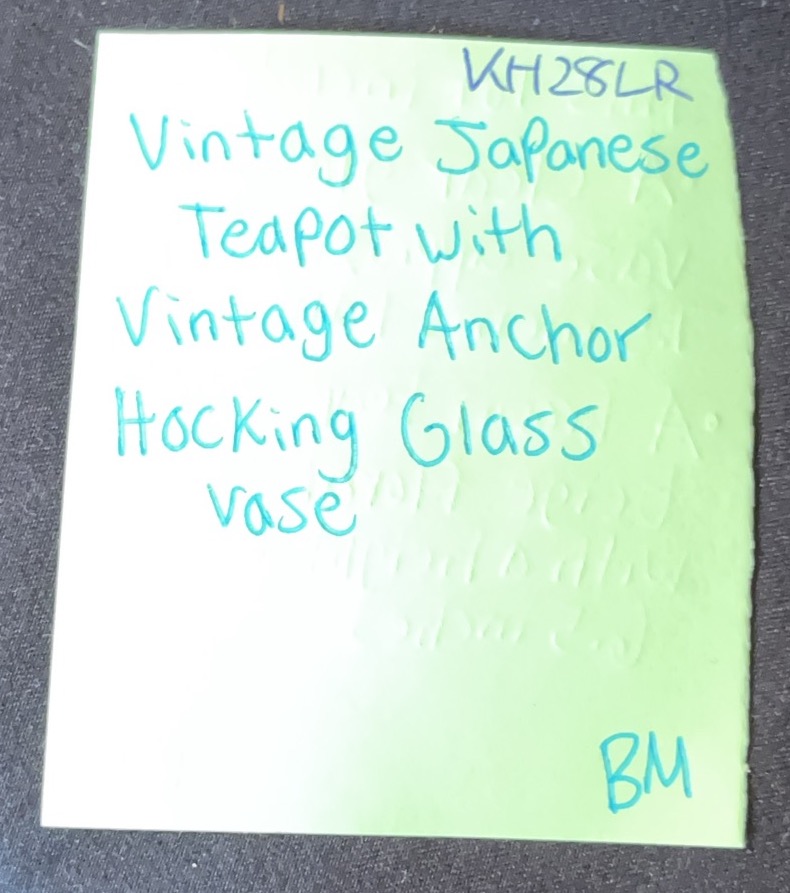 KH28LR
Vintage Japanese
Teapot with
Vintage Anchor
Hocking Glass
vase
BM